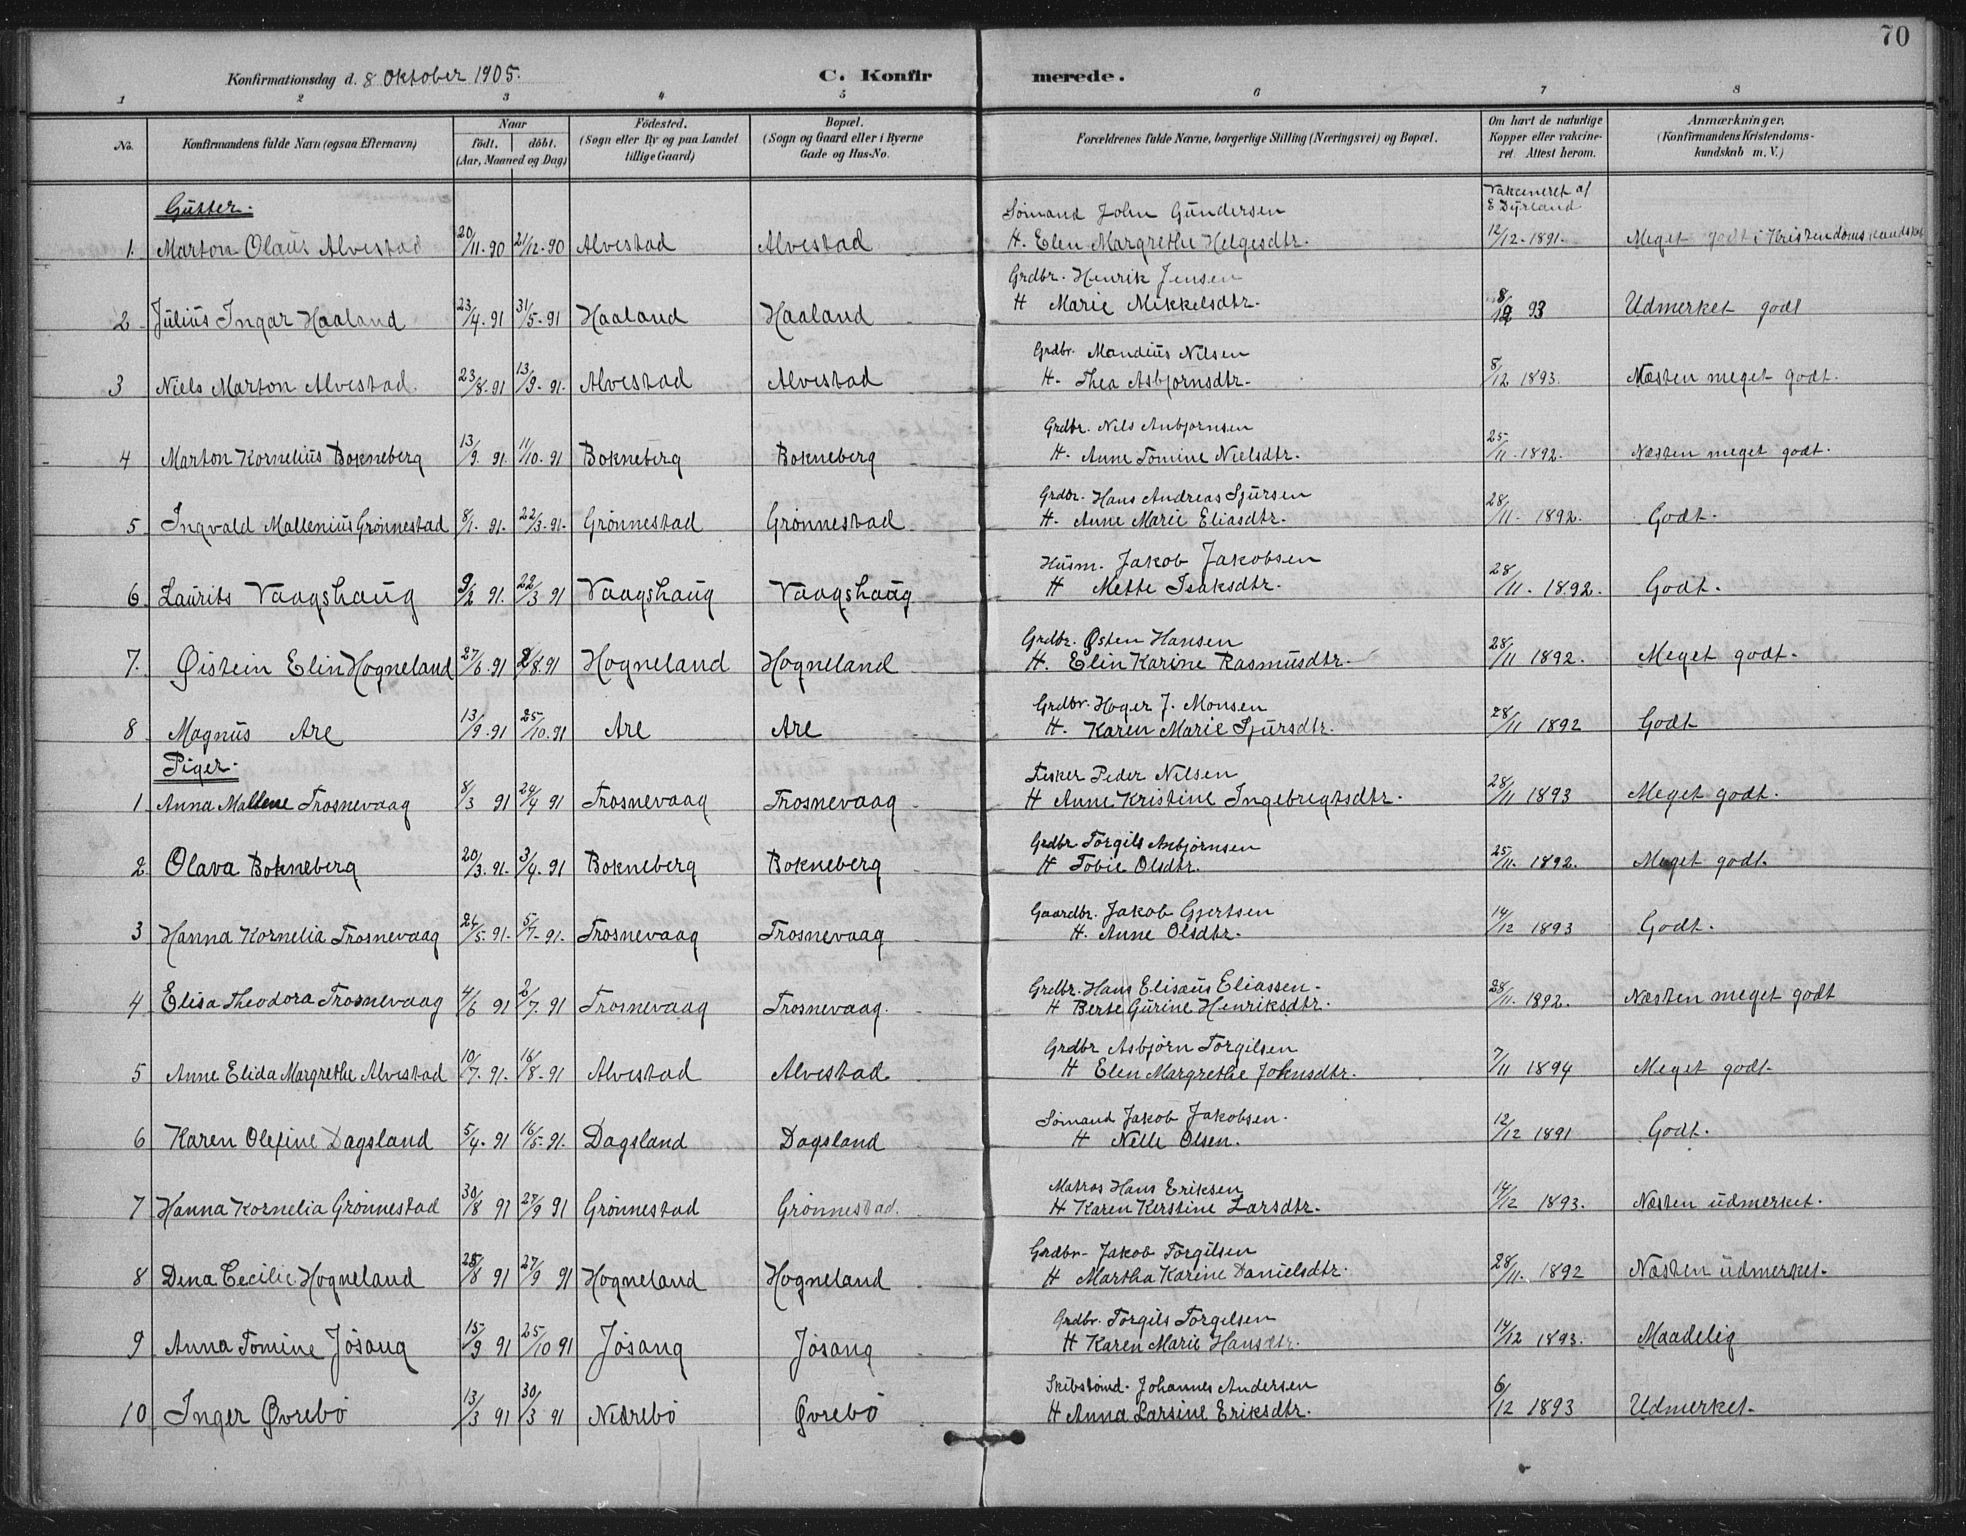 70
Konfirmationsdag d. 8 Oktober 1905. C. Konfirmerede.
1 2 3 4 5 6 7 8
No. Konfirmandens fulde Navn (ogsaa Efternavn) Naar født. døbt. (Aar, Maaned og Dag) Fødested. (Sogn eller By og paa Landet tillige Gaard) Bopæl. (Sogn og Gaard eller i Byerne Gade og Hus-No. Forældrenes fulde Navne, borgerlige Stilling (Næringsvei) og Bopæl. Om havt de naturlige Kopper eller vakcineret. Attest herom. Anmærkninger. (Konfirmandens Kristendomskundskab m. V.)
Gutter. Vakcineret af E Dyrland
Sömand John Gundersen
1. Marton Olaus Alvestad 20/11-90 21/12-90 Alvestad Alvestad H. Elen Margrethe Helgesdtr. 12/12-1891. Meget godt i Kristendoms
Grdbr. Henrik Jensen
2. Julius Ingar Haaland 23/4-91 31/5-91 Haaland Haaland H Marie Mikkelsdtr. 8/12 93 Udmerket godt
Grdbr. Mandius Nilsen
3 Niels Marton Alvestad. 23/8-91 13/9-91. Alvestad Alvestad H. Thea Asbjornsdtr. 8/12 1893. Næsten meget godt.
Grdbr. Nils Anbjornsen
4 Marton Kornelius Bokneberg 13/9. 91. 11/10-91 Bokneberg Bokneberg H. Anne Tomine Nielsdtr. 25/11-1892. Næsten meget godt.
Grdbr. Hans Andreas Sjursen
5. Ingvald Mallenius Grönnestad 8/1-91. 22/3-91. Grönnestad Grönnestad H. Anne Marie Eliasdtr. 28/11-1892. Godt.
Husm. Jakob Jakobsen
6. Laurits Vaagshaug 9/2 91. 22/3 91 Vaagshaug Vaagshaug H Mette Isaksdtr. 28/11-1892. Godt.
Grdbr. Østen Hansen
7. Øistein Elin Hogneland 27/6-91 2/8.91 Hogneland Hogneland H. Elin Karine Rasmusdtr. 28/11 1892. Meget godt.
Grdbr. Hoger J. Monsen
8 Magnus Are 13/9-91 25/10.91 Are Are H. Karen Marie Sjursdtr. 28/11 1892 Godt
Piger.
Fisker Peder Nilsen
1 Anna Mallene Trosnevaag 8/3 91 24/4 91 Trosnevaag Trosnevaag H Anne Kristine Ingebregtsdtr. 28/11 1893 Meget godt.
Grdbr Torgils Asbjörnsen
2 Olava Bokneberg 20/3.91. 3/4.91 Bokneberg Bokneberg H Tobie Olsdtr. 25/11. 1892. Meget godt.
Gaardbr. Jakob Gjertsen
3 Hanna Kornelia Trosnevaag 26/5.91. 5/7-91. Trosnevaag Trosnevaag H. Anne Olsdtr. 14/12 1893 Godt.
Grdbr. Hans Elisæus Eliassen
4 Elisa Theodora Trosnevaag 4/6 91 2/7. 91 Trosnevaag Trosnevaag. H Berte Gurine Henriksdtr. 28/11. 1892. Næsten meget godt
Grdbr Asbjörn Torgilsen
5 Anne Elida Margrethe Alvestad 10/7.91. 16/8-91 Alvestad Alvestad H Elen Margrethe Johnsdtr. 7/11 1894 Meget godt.
Sömand Jakob Jakobsen.
6 Karen Olefine Dagsland 5/4-91 16/5-91. Dagsland Dagsland H Nelle Olsen. 12/12 1891 Godt.
Matros Hans Eriksen
7 Hanna Kornelia Grönnestad 30/8 91 27/9 91 Grönnestad Grönnestad. H Karen Kerstine Larsdtr. 14/12 1893. Næsten udmerket.
Grdbr. Jakob Torgilsen
8 Dina Cecilie Hogneland 28/8 91 27/9 91 Hogneland Hogneland H Martha Karine Danielsdtr. 28/11. 1892 Næsten udmerket.
Grdbr. Torgils Torgilsen
9 Anna Tomine Jösang 15/9 91 25/10 91 Jösang Jösang H Karen Marie Hansdtr. 14/12 1893. Maadelig
Skibstömd. Johannes Andersen
10 Inger Øvrebö 13/3 91 30/3 91 Nedrebö Øvrebö H Anna Larsine Eriksdtr. 6/12 1893 Udmerket.